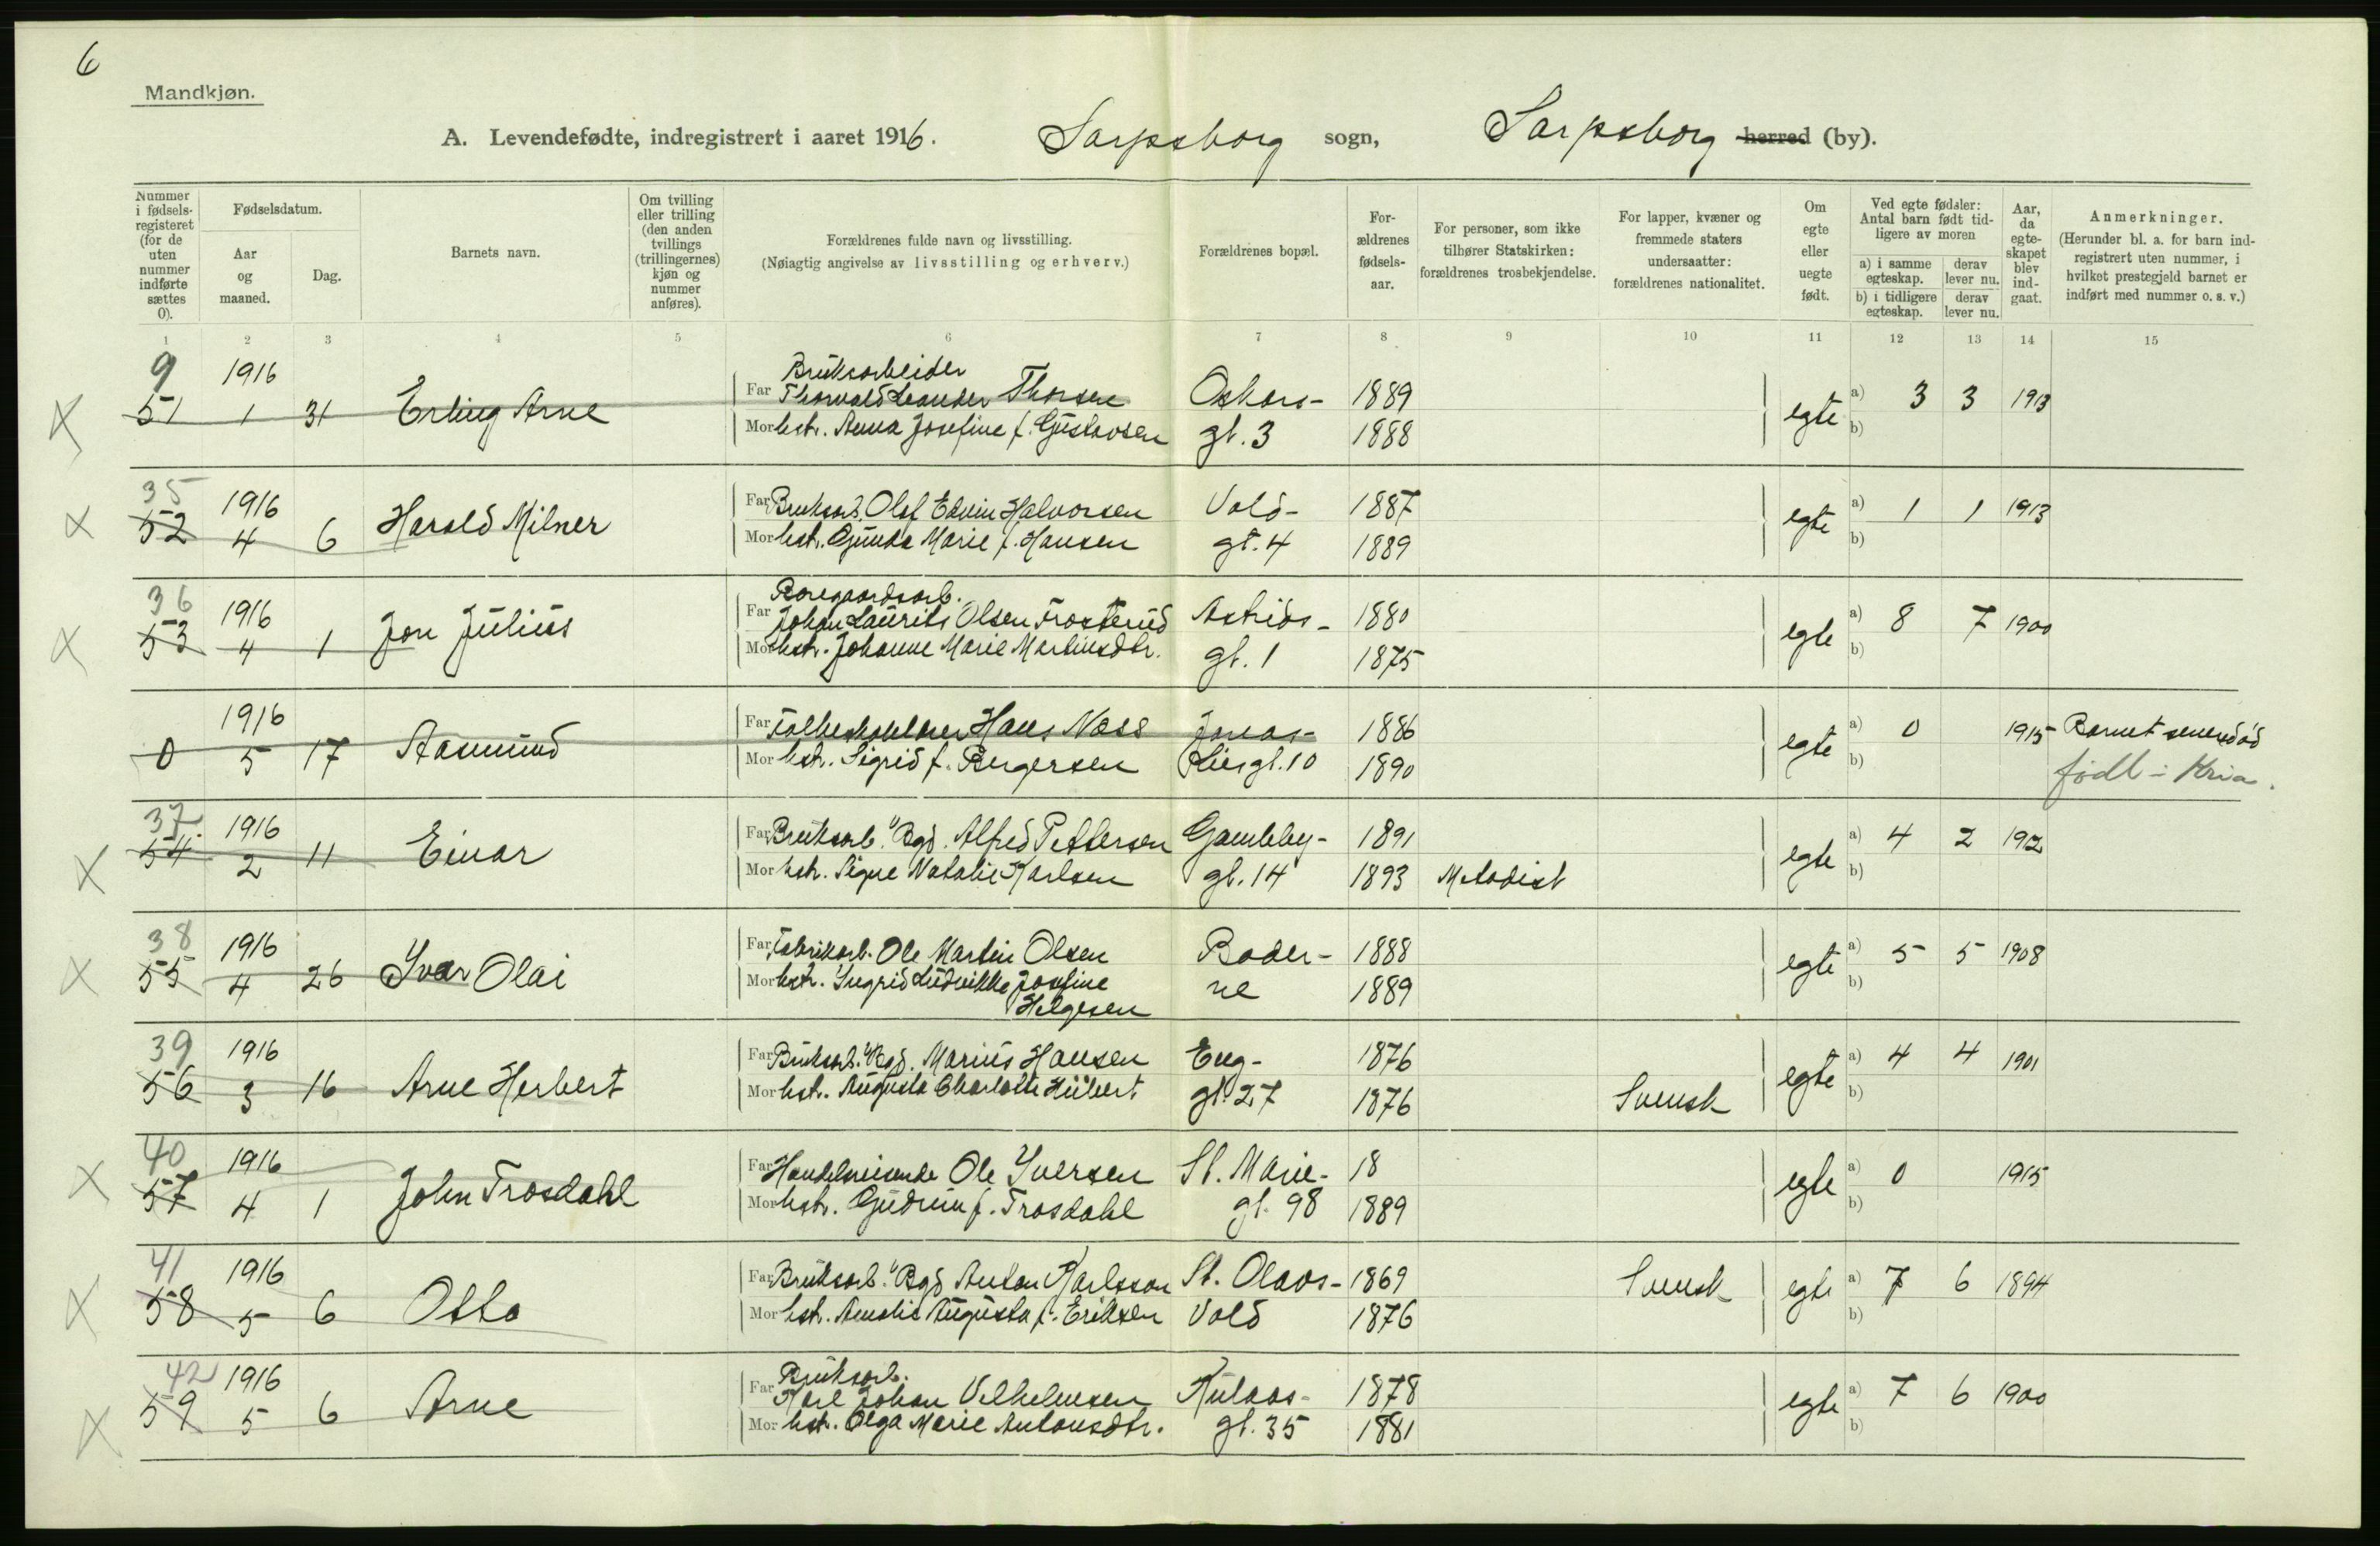 6
Mandkjøn.
A. Levendefødte, indregistrert i aaret 1916. Sarpsborg sogn, Sarpsborg herred (by).
Nummer i fødsels-registeret (for de uten nummer indførte sættes 0).
Fødselsdatum.
Aar og maaned.
Dag.
Barnets navn.
Om tvilling eller trilling (den anden tvillings (trillingernes) kjøn og nummer anføres).
Forældrenes fulde navn og livsstilling.
(Nøiagtig angivelse av livsstilling og erhverv.)
Forældrenes bopæl.
For-ældrenes fødsels-aar.
For personer, som ikke tilhører Statskirken: forældrenes trosbekjendelse.
For lapper, kvæner og fremmede staters undersaatter: forældrenes nationalitet.
Om egte eller uegte født.
Ved egte fødsler: Antal barn født tid-ligere av moren
a) i samme egteskap.
derav lever nu.
b) i tidligere egteskap.
derav lever nu.
Aar, da egte-skapet blev ind-gaat.
Anmerkninger.
(Herunder bl. a. for barn ind-registrert uten nummer, i hvilket prestegjeld barnet er indført med nummer o. s. v.)
1 2 3 4 5 6 7 8 9 10 11 12 13 14 15
9 1916 Bruksarbeider
51 1 31 Erling Arne Far Thorvald Leander Thorsen Oskars- 1889 egte a) 3 3 1913
Mor hstr. Anna Josefine f. Gustavsen gt. 3 1888 b)
35 1916 Far Bruksarb. Olaf Edvin Halvorsen Vold- 1887 egte a) 1 1 1913
52 4 6 Harald Milner Mor hstr. Gunda Marie f. Hansen gt. 4 1889 b)
36 1916 Far Johan Laurits Olsen Frosterud Astrids- 1880 egte a) 8 7 1900
53 4 1 Jon Julius Mor hstr. Johanne Marie Martinsdtr. gt. 1 1875 b)
1916 Far Hans Næss Jonas- 1886 egte a) 0 1915 Barnet
0 5 17 Aasmund Mor hstr. Sigrid f. Bergersen Liesgt. 10 1890 b) født i Kria.
37 1916 Far Bruksarb. v/ Bgd. Alfred Pettersen Gamleby- 1891 egte a) 4 2 1912
54 2 11 Einar Mor hstr. Signe Natalie Karlsen gt. 14 1893 Metodist b)
38 1916 Far Fabrikarb. Ole Martin Olsen Bader- 1888 egte a) 5 5 1908
55 4 26 Ivar Olai Mor hstr. Ingrid Ludvikke Josefine ne 1889 b)
Helgesen
39 1916 Far Bruksarb. v/ Bgd. Marius Hansen Eng- 1876 egte a) 4 4 1901
56 3 16 Arne Herbert Mor hstr. Augusta Charlotte Hübert gt. 27 1876 Svensk b)
40 1916 Far Handelsreisende Ole Iversen St. Marie- 18 egte a) 0 1915
57 4 1 John Trosdahl Mor hstr. Gudrun f. Trosdahl gt. 98 1889 b)
41 1916 Far Bruksarb. v/ Bgd Anton Karlsson St. Olavs- 1869 Svensk egte a) 7 6 1894
58 5 6 Otto Mor hstr. Amalie Augusta f. Eriksen Vold 1876 b)
42 1916 Bruksarb.
59 5 6 Arne Far Karl Johan Vilhelmsen Kulaas- 1878 egte a) 7 6 1900
Mor hstr. Olga Marie Antonsdtr. gt. 35 1881 b)